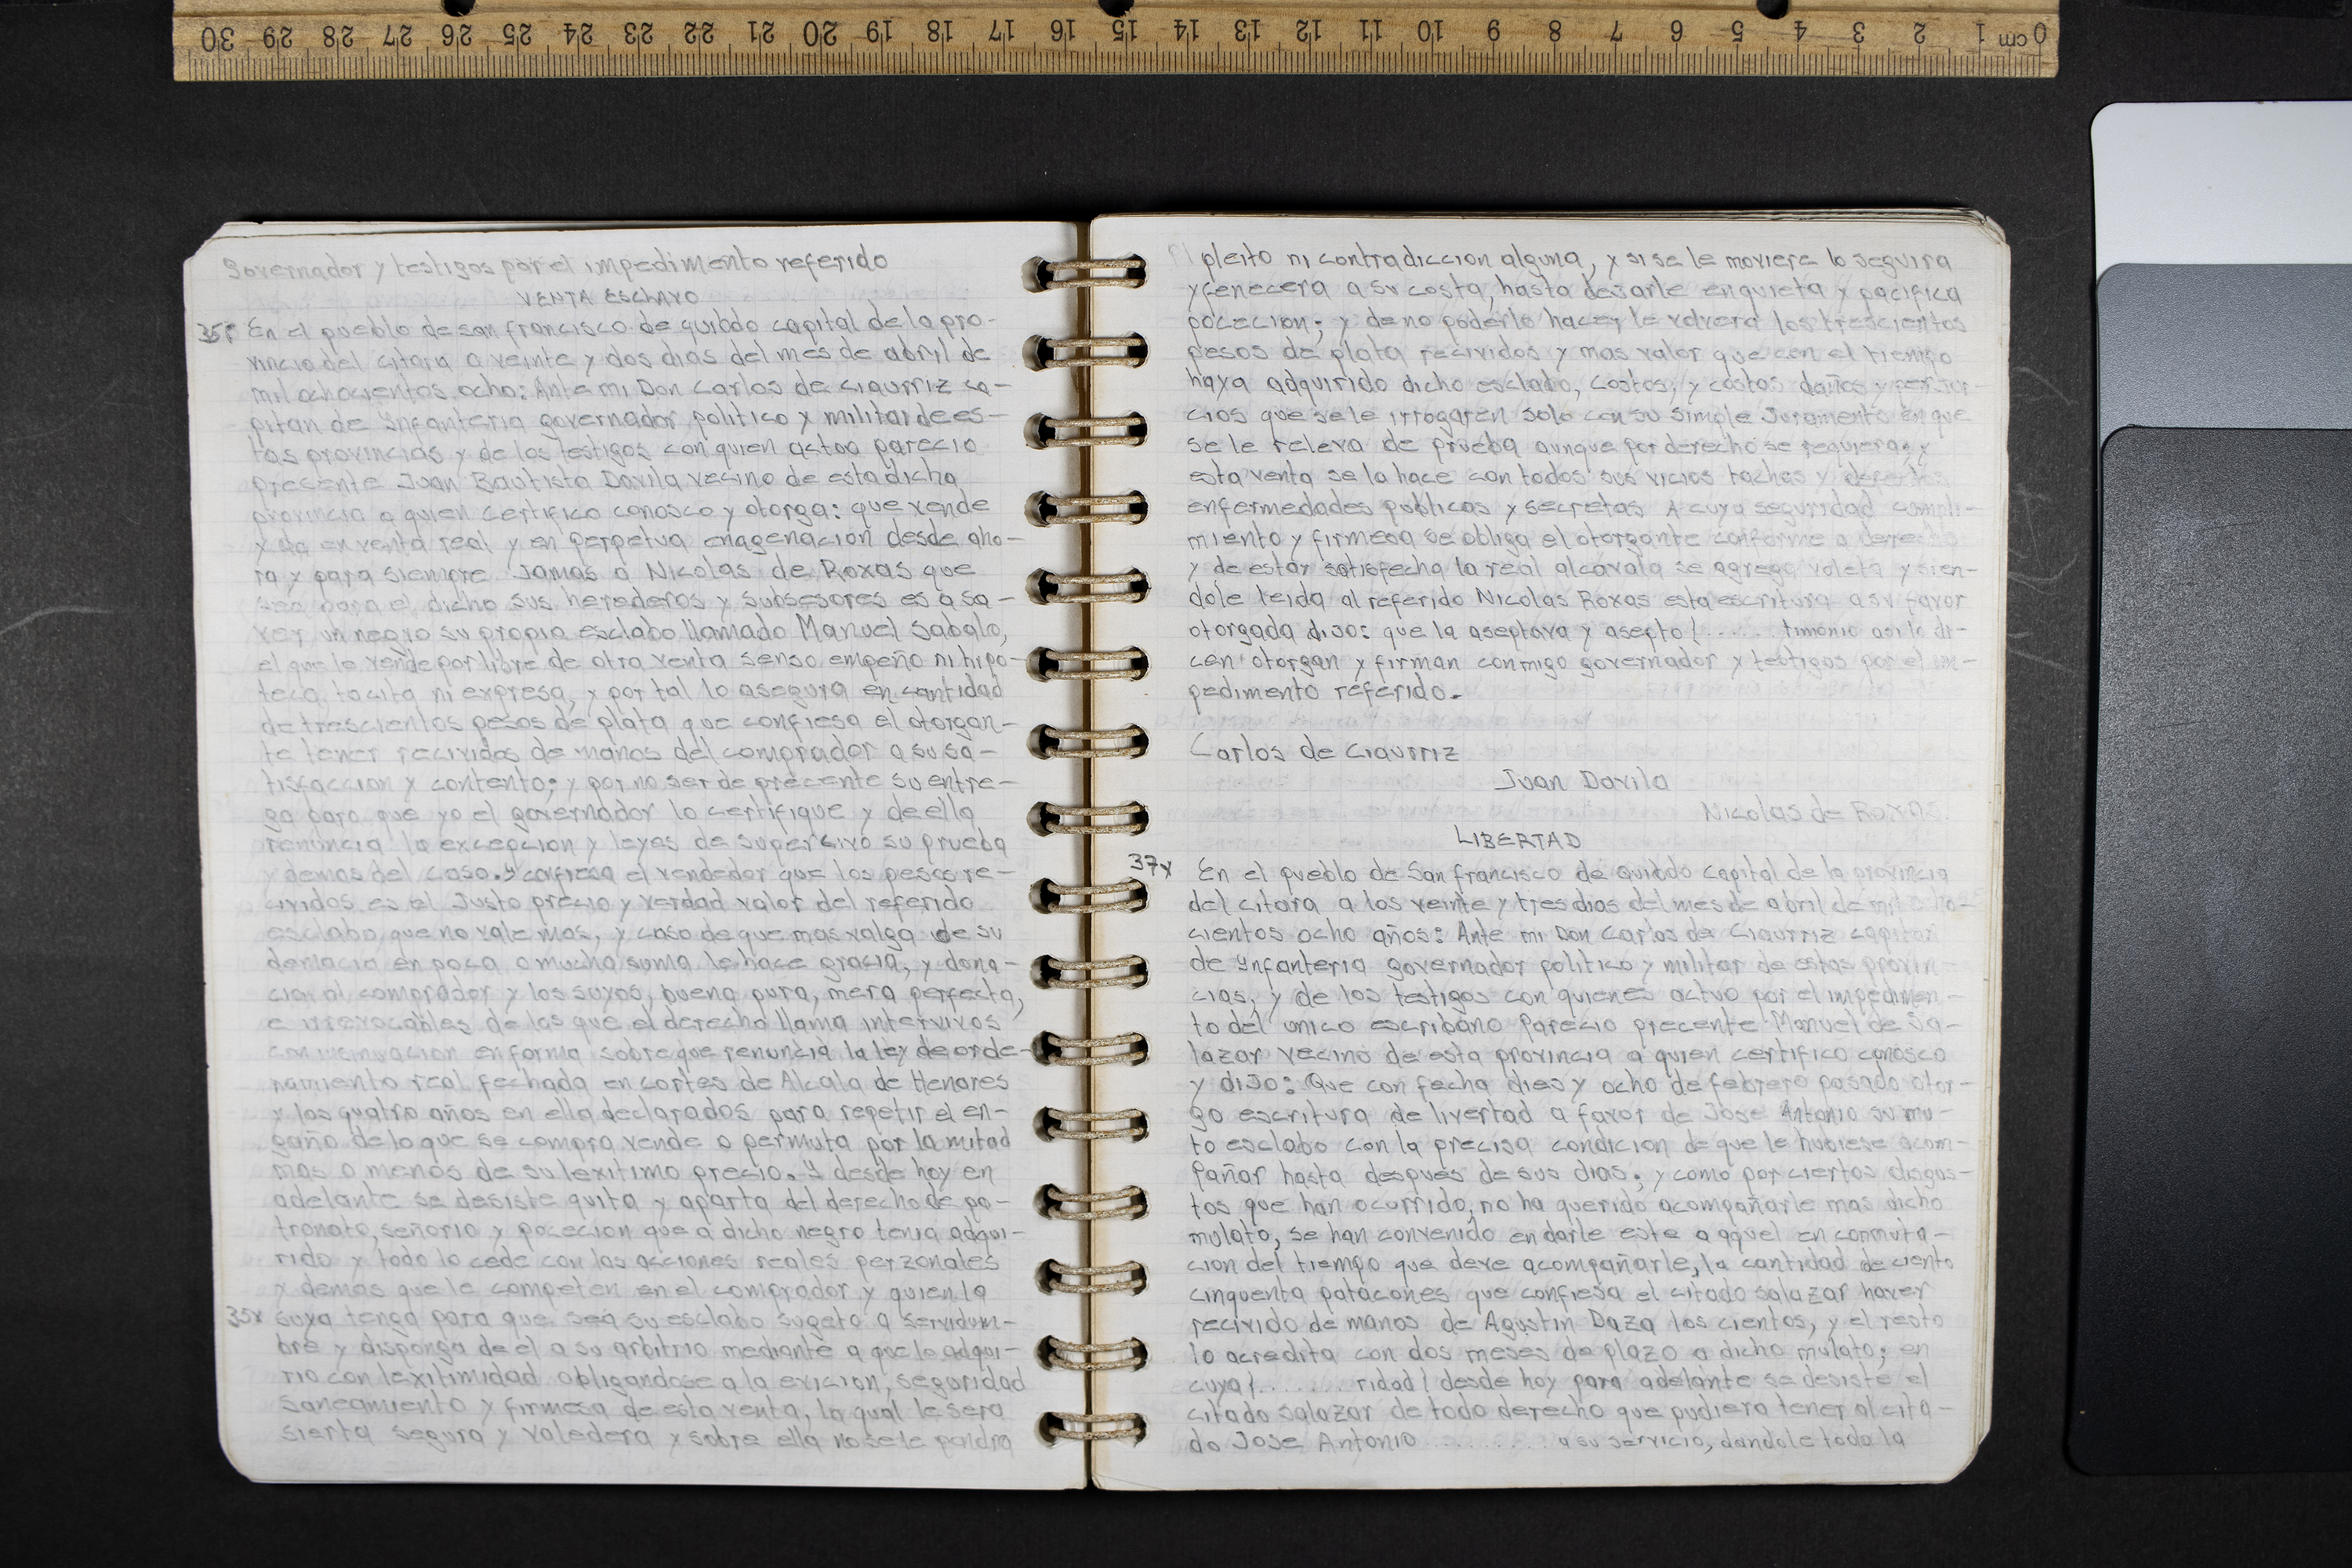 0 cm 1 2 3 4 5 6 7 8 9 10 11 12 13 14 15 16 17 18 19 20 21 22 23 24 25 26 27 28 29 30
Governador y testigos por el impedimento referido
VENTA ESCLAVO
35r En el pueblo de san francisco de quibdo capital de la pro-
vincia del citara a veinte y dos dias del mes de abril de
mil ochocientos ocho: Ante mi Don Carlos de Ciaurriz ca-
pitan de Ynfanteria governador politico y militar de es-
tas provincias y de los testigos con quien actuo parecio
presente Juan Bautista Davila vecino de esta dicha
provincia a quien certifico conosco y otorga: que vende
y da en venta real y en perpetua enagenacion desde aho-
ra y para siempre Jamas a Nicolas de Roxas que
sea para el dicho sus herederos y subsesores es a sa-
ver un negro su propio esclabo llamado Manuel Sabalo,
el que le vende por libre de otra venta senso empeño ni hipo-
teca, tacita ni expresa, y por tal lo asegura en cantidad
de trescientos pesos de plata que confiesa el otorgan-
te tener recividos de manos del comprador a su sa-
tisfaccion y contento; y por no ser de precente su entre-
ga para que yo el governador lo certifique y de ella
renuncia la excepcion y leyes de supercivo su prueba
y demas del caso. Y confiesa el vendedor que los pesos re-
cividos es el Justo precio y verdad valor del referido
esclabo, que no vale mas, y caso de que mas valga de su
demacia en poca o mucha suma le hace gracia, y dona-
cion al comprador y los suyos, buena pura, mera perfecta,
e irrevocables de las que el derecho llama intervivos
con incinuacion en forma sobre que renuncia la ley de orde-
namiento real fechada en cortes de Alcala de Henares
y los quatro años en ella declarados para repetir el en-
gaño de lo que se compra vende o permuta por la mitad
mas o menos de su lexitimo precio. Y desde hoy en
adelante se desiste quita y aparta del derecho de pa-
tronato, señorio y pocecion que a dicho negro tenia adqui-
rido y todo lo cede con las acciones reales perzonales
y demas que le competen en el comprador y quien la
35v suya tenga para que sea su esclabo sugeto a servidum-
bre y disponga de el a su arbitrio mediante a que lo adqui-
rio con lexitimidad obligandose a la evicion, seguridad
saneamiento y firmesa de esta venta, la qual le sera
sierta segura y valedera y sobre ella no se le pondra
pleito ni contradiccion alguna, y si se le moviere lo seguira
y fenecera a su costa, hasta dejarle en quieta y pacifica
pocecion; y de no poderlo hacer le volvera los trescientos
pesos de plata recividos y mas valor que con el tiempo
haya adquirido dicho esclabo, costos, y costas daños y perjui-
cios que se le irrogaren solo con su simple Juramento en que
se le releva de prueba aunque por derecho se requiera; y
esta venta se la hace con todos sus vicios tachas y defectos
enfermedades publicas y secretas A cuya seguridad cumpli-
miento y firmesa se obliga el otorgante conforme a derecho
y de estar satisfecha la real alcavala se agrega voleta y sien-
dole leida al referido Nicolas Roxas esta escritura a su favor
otorgada dijo: que la aseptava y asepto {...... timonio asi lo di-
cen otorgan y firman conmigo governador y testigos por el im-
pedimento referido.
Carlos de Ciaurriz
Juan Davila
Nicolas de Roxas.
LIBERTAD
37v En el pueblo de San francisco de Quibdo capital de la provincia
del citara a los veinte y tres dias del mes de abril de mil ocho-
cientos ocho años: Ante mi Don Carlos de Ciaurriz capitan
de Ynfanteria governador politico y militar de estas provin-
cias, y de los testigos con quienes actuo por el impedimen-
to del unico escribano Parecio precente Manuel de Sa-
lazar vecino de esta provincia a quien certifico conosco
y dijo: Que con fecha dies y ocho de febrero pasado otor-
go escritura de livertad a favor de Jose Antonio su mu-
to esclabo con la precisa condicion de que le hubiese acom-
pañar hasta despues de sus dias; y como por ciertos disgus-
tos que han ocurrido, no ha querido acompañarle mas dicho
mulato, se han convenido en darle este a aquel en conmuta-
cion del tiempo que deve acompañarle, la cantidad de ciento
cinquenta patacones que confiesa el citado salazar haver
recivido de manos de Agustin Daza los cientos, y el resto
lo acredita con dos meses de plazo a dicho mulato; en
cuya {....... ridad { desde hoy para adelante se desiste el
citado salazar de todo derecho que pudiera tener al cita-
do Jose Antonio .......... a su servicio, dandole toda la